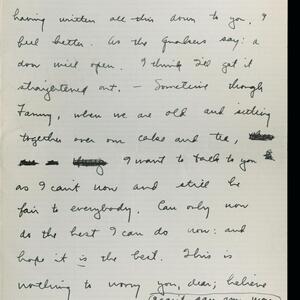 having written all this down to you, I
feel better. As the Quakers say: a
door will open. I think I'll get it
straightened out. — Sometime though
Fanny, when we are old and sitting
together over our cake and tea,
I want to talk to you
as I can't now and still be
fair to everybody. Can only now
do the best I can do now: and
hope it is the best. This is
nothing to worry you, dear; believe